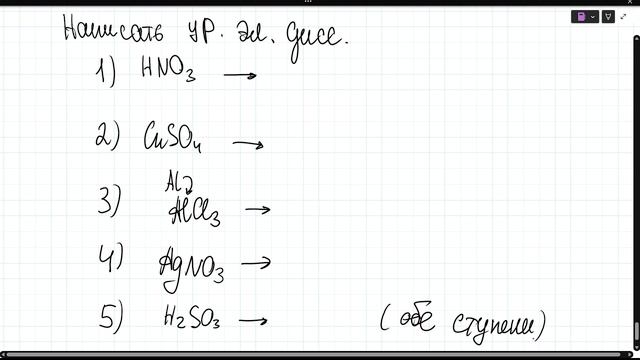 Написать ур. эл. дисс.
1) HNO3 →
2) CuSO4 →
Al
3) AlCl3 →
4) AgNO3 →
5) H2SO3 → (обе ступени)